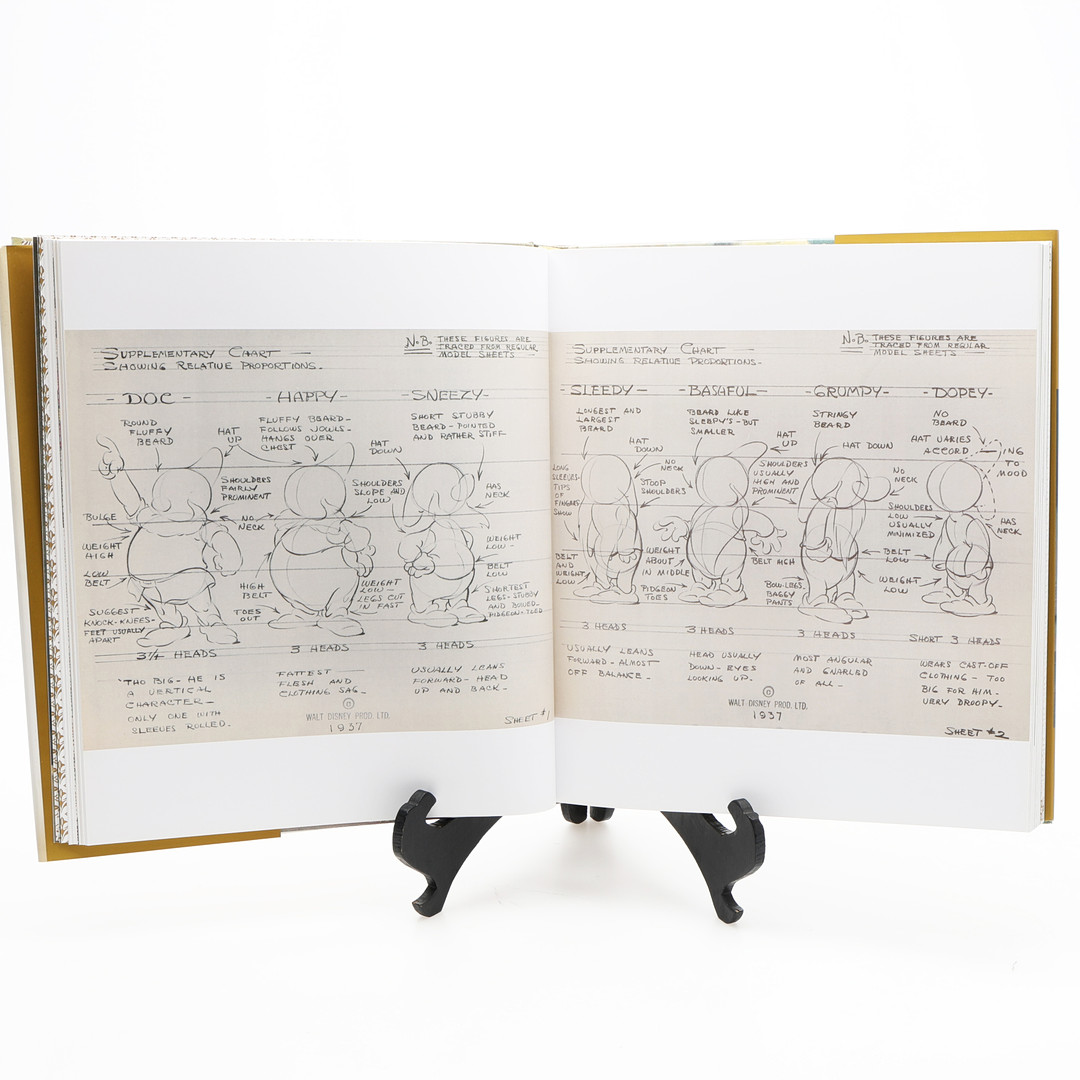 SUPPLEMENTARY CHART
SHOWING RELATIVE PROPORTIONS.
N.B. THESE FIGURES ARE
TRACED FROM REGULAR
MODEL SHEETS
- DOC -
- HAPPY -
- SNEEZY -
ROUND
FLUFFY
BEARD
HAT
UP
FLUFFY BEARD -
FOLLOWS JOWLS -
HANGS OVER
CHEST
HAT
DOWN
SHORT STUBBY
BEARD - POINTED
AND RATHER STIFF
SHOULDERS
FAIRLY
PROMINENT
SHOULDERS
SLOPE AND
LOW
HAS
NECK
BULGE
NO
NECK
WEIGHT
HIGH
WEIGHT
LOW -
LOW
BELT
HIGH
BELT
WEIGHT
LOW -
LEGS CUT
IN FAST
BELT
LOW
SUGGEST
KNOCK-KNEES -
FEET USUALLY
APART
TOES
OUT
SHORTEST
LEGS - STUBBY
AND BOWED -
PIDGEON-TOED
3¼ HEADS
3 HEADS
3 HEADS
'THO BIG - HE IS
A VERTICAL
CHARACTER -
ONLY ONE WITH
SLEEVES ROLLED -
FATTEST -
FLESH AND
CLOTHING SAG -
USUALLY LEANS
FORWARD - HEAD
UP AND BACK -
©
WALT DISNEY PROD. LTD.
1937
SHEET #1
SUPPLEMENTARY CHART
SHOWING RELATIVE PROPORTIONS -
N.B. THESE FIGURES ARE
TRACED FROM REGULAR
MODEL SHEETS
SLEEPY -
- BASHFUL -
- GRUMPY -
- DOPEY -
LONGEST AND
LARGEST
BEARD
BEARD LIKE
SLEEPY'S - BUT
SMALLER
STRINGY
BEARD
NO
BEARD
HAT
DOWN
HAT
UP
HAT DOWN
HAT VARIES
ACCORD - ING
TO
MOOD
LONG
SLEEVES -
TIPS
OF
FINGERS
SHOW
NO
NECK
STOOP
SHOULDERS
SHOULDERS
USUALLY
HIGH AND
PROMINENT
NO
NECK
SHOULDERS
LOW
USUALLY
MINIMIZED
HAS
NECK
BELT
AND
WEIGHT
LOW
WEIGHT
ABOUT
IN MIDDLE
BELT HIGH
BELT
LOW
PIDGEON
TOES
BOW-LEGS
BAGGY
PANTS
WEIGHT
LOW
3 HEADS
3 HEADS
3 HEADS
SHORT 3 HEADS
USUALLY LEANS
FORWARD - ALMOST
OFF BALANCE -
HEAD USUALLY
DOWN - EYES
LOOKING UP.
MOST ANGULAR
AND GNARLED
OF ALL -
WEARS CAST-OFF
CLOTHING - TOO
BIG FOR HIM -
VERY DROOPY -
©
WALT DISNEY PROD. LTD.
1937
SHEET #2